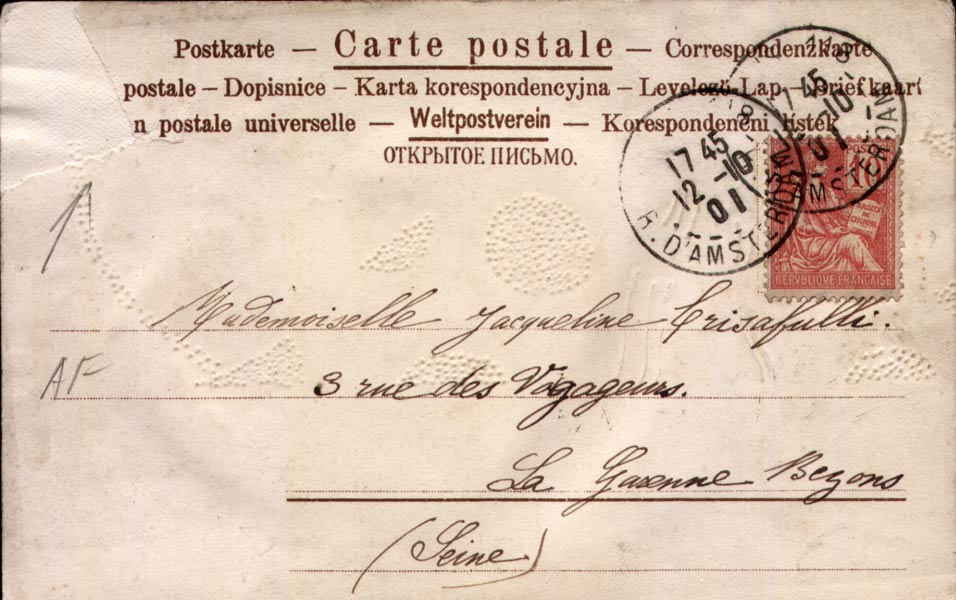 Postkarte — Carte postale — Correspondenzkarte
postale – Dopisnice – Karta korespondencyjna – Levelező-Lap – Briefkaart
n postale universelle – Weltpostverein – Korespondenčni listek
ОТКРЫТОЕ ПИСЬМО.
17 45
12 -10
01
R. D'AMSTERDAM
17 45
-10
01
AMSTERDAM
POSTES
10
DROITS DE L'HOMME
REPUBLIQUE FRANÇAISE
Mademoiselle Jacqueline Crisafulli.
AF
3 rue des Voyageurs.
La Garenne Bezons
(Seine)